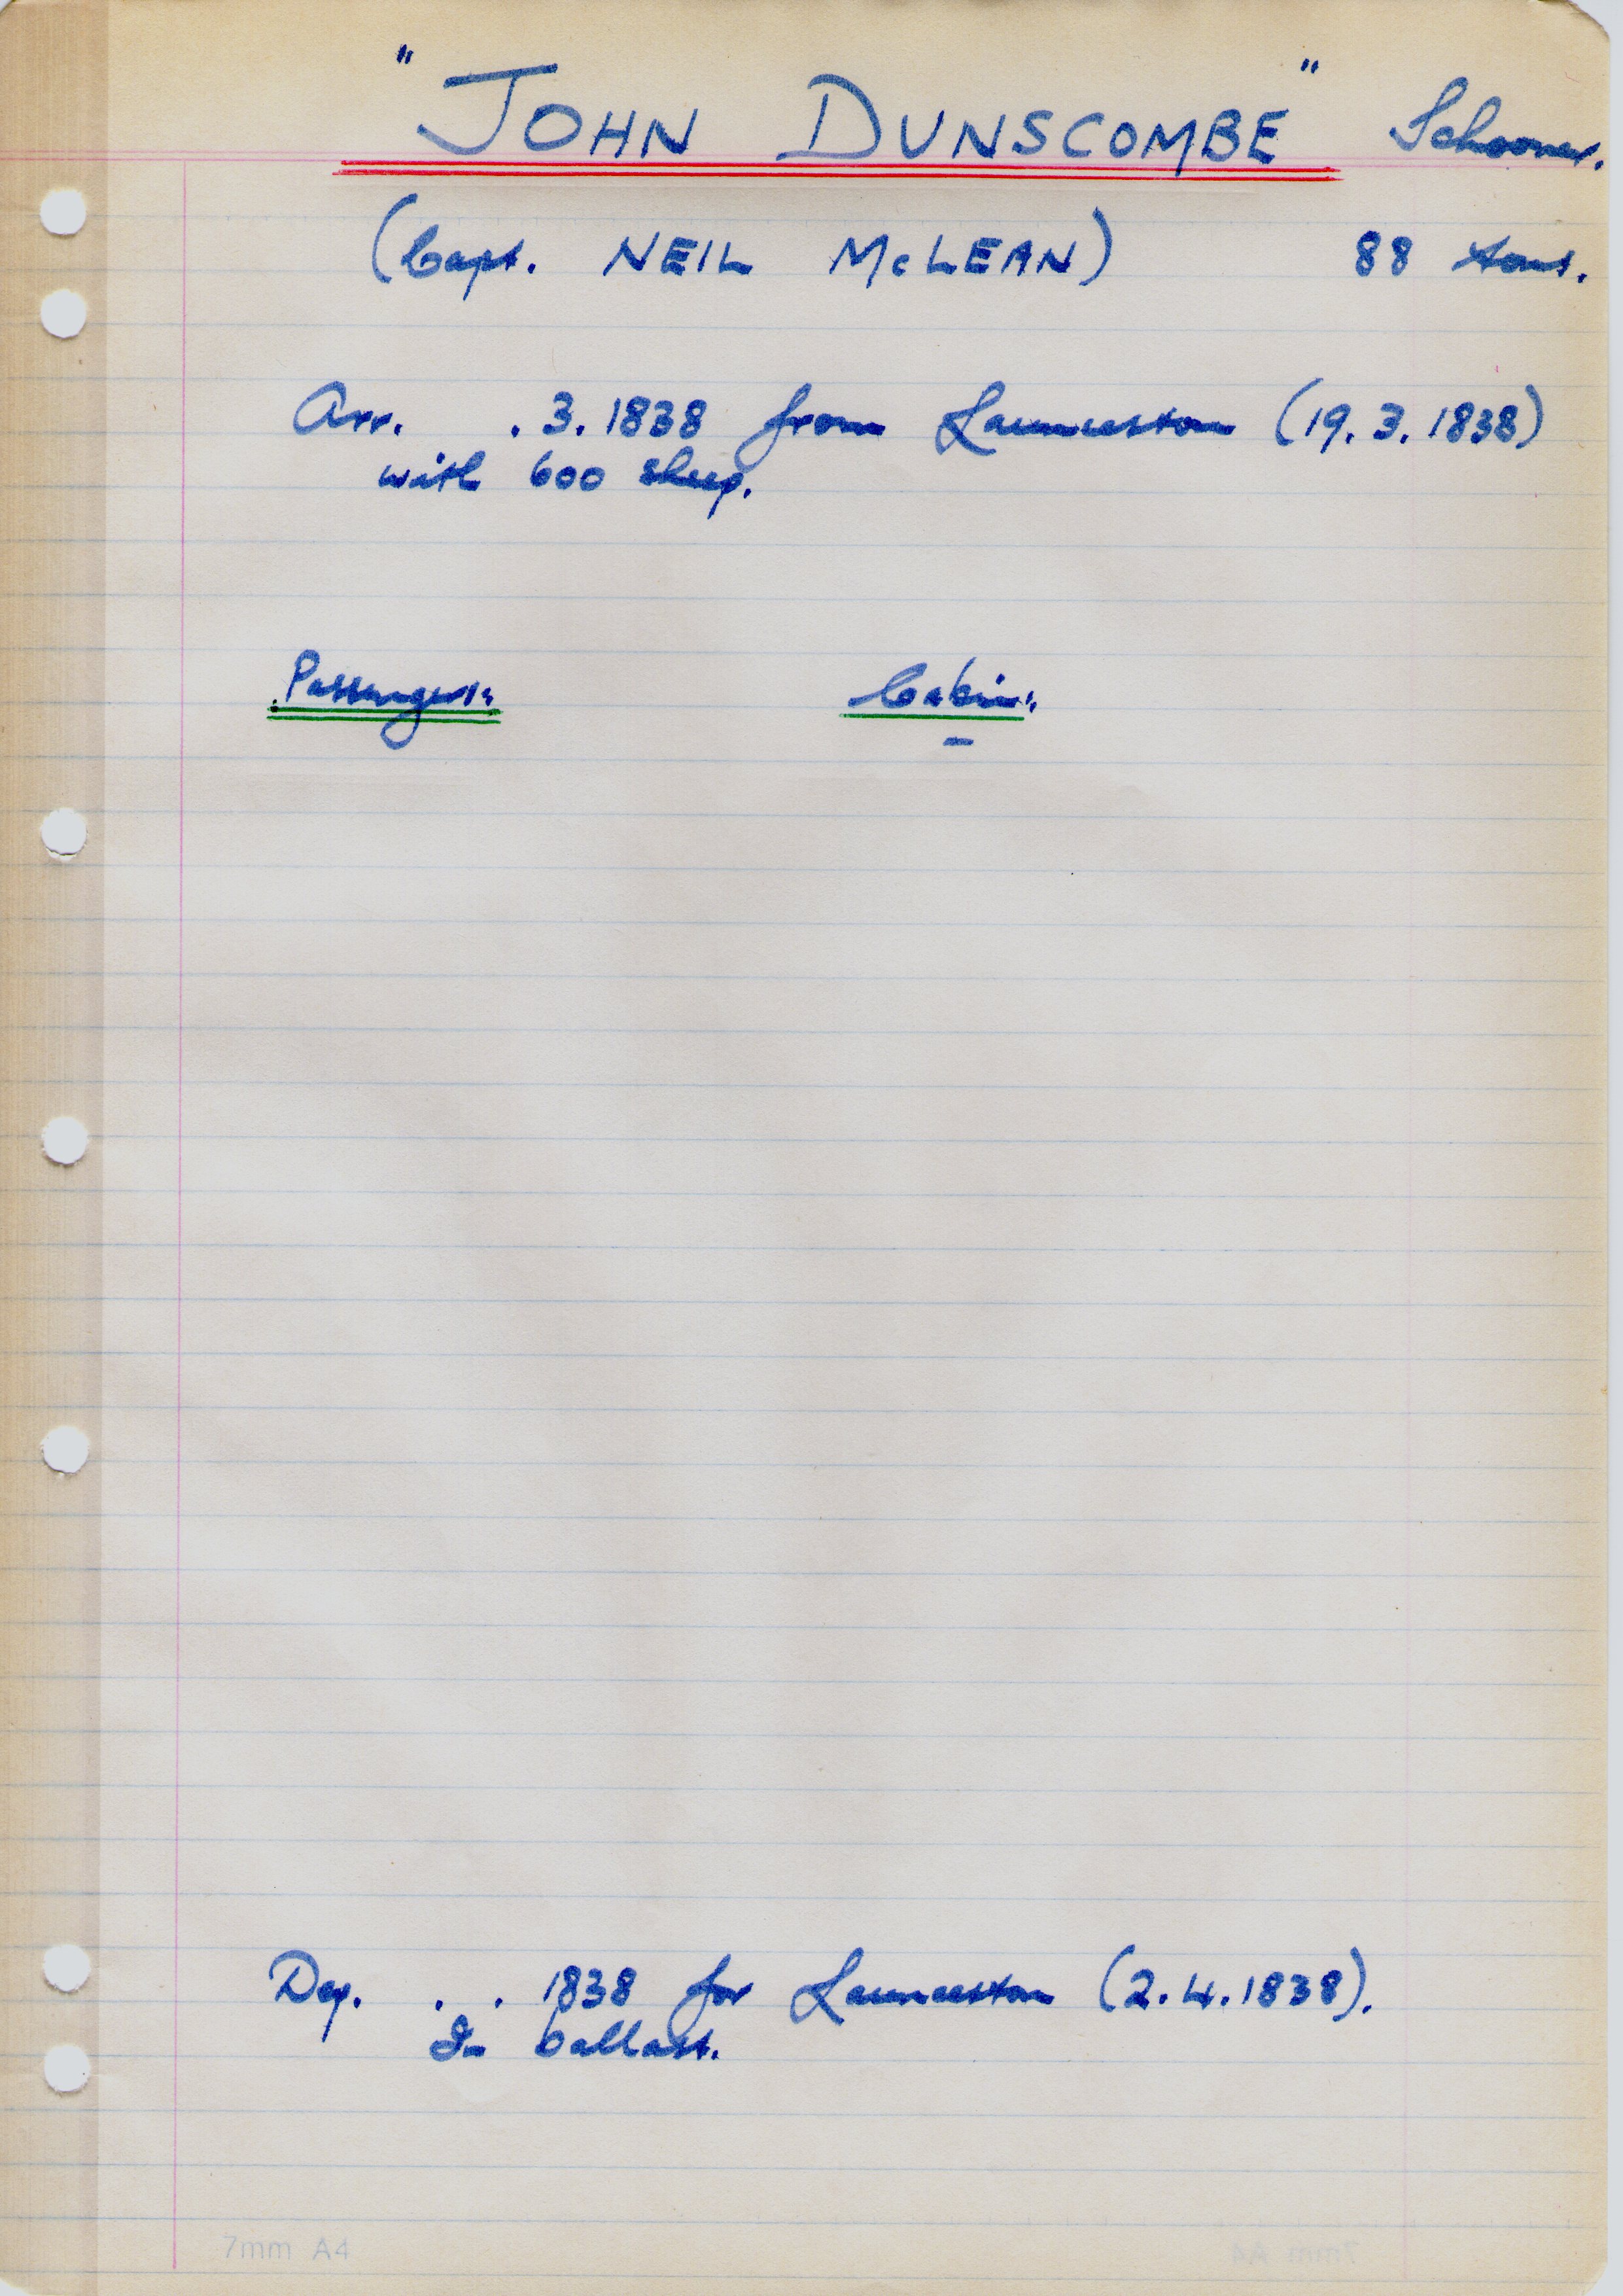 "JOHN DUNSCOMBE" Schooner.
(Capt. NEIL McLEAN) 88 tons.
Arr. . 3. 1838 from Launceston (19. 3. 1838)
with 600 sheep.
Passengers:
Cabin:
–
Dep. . . 1838 for Launceston (2. 4. 1838).
In ballast.
7mm A4